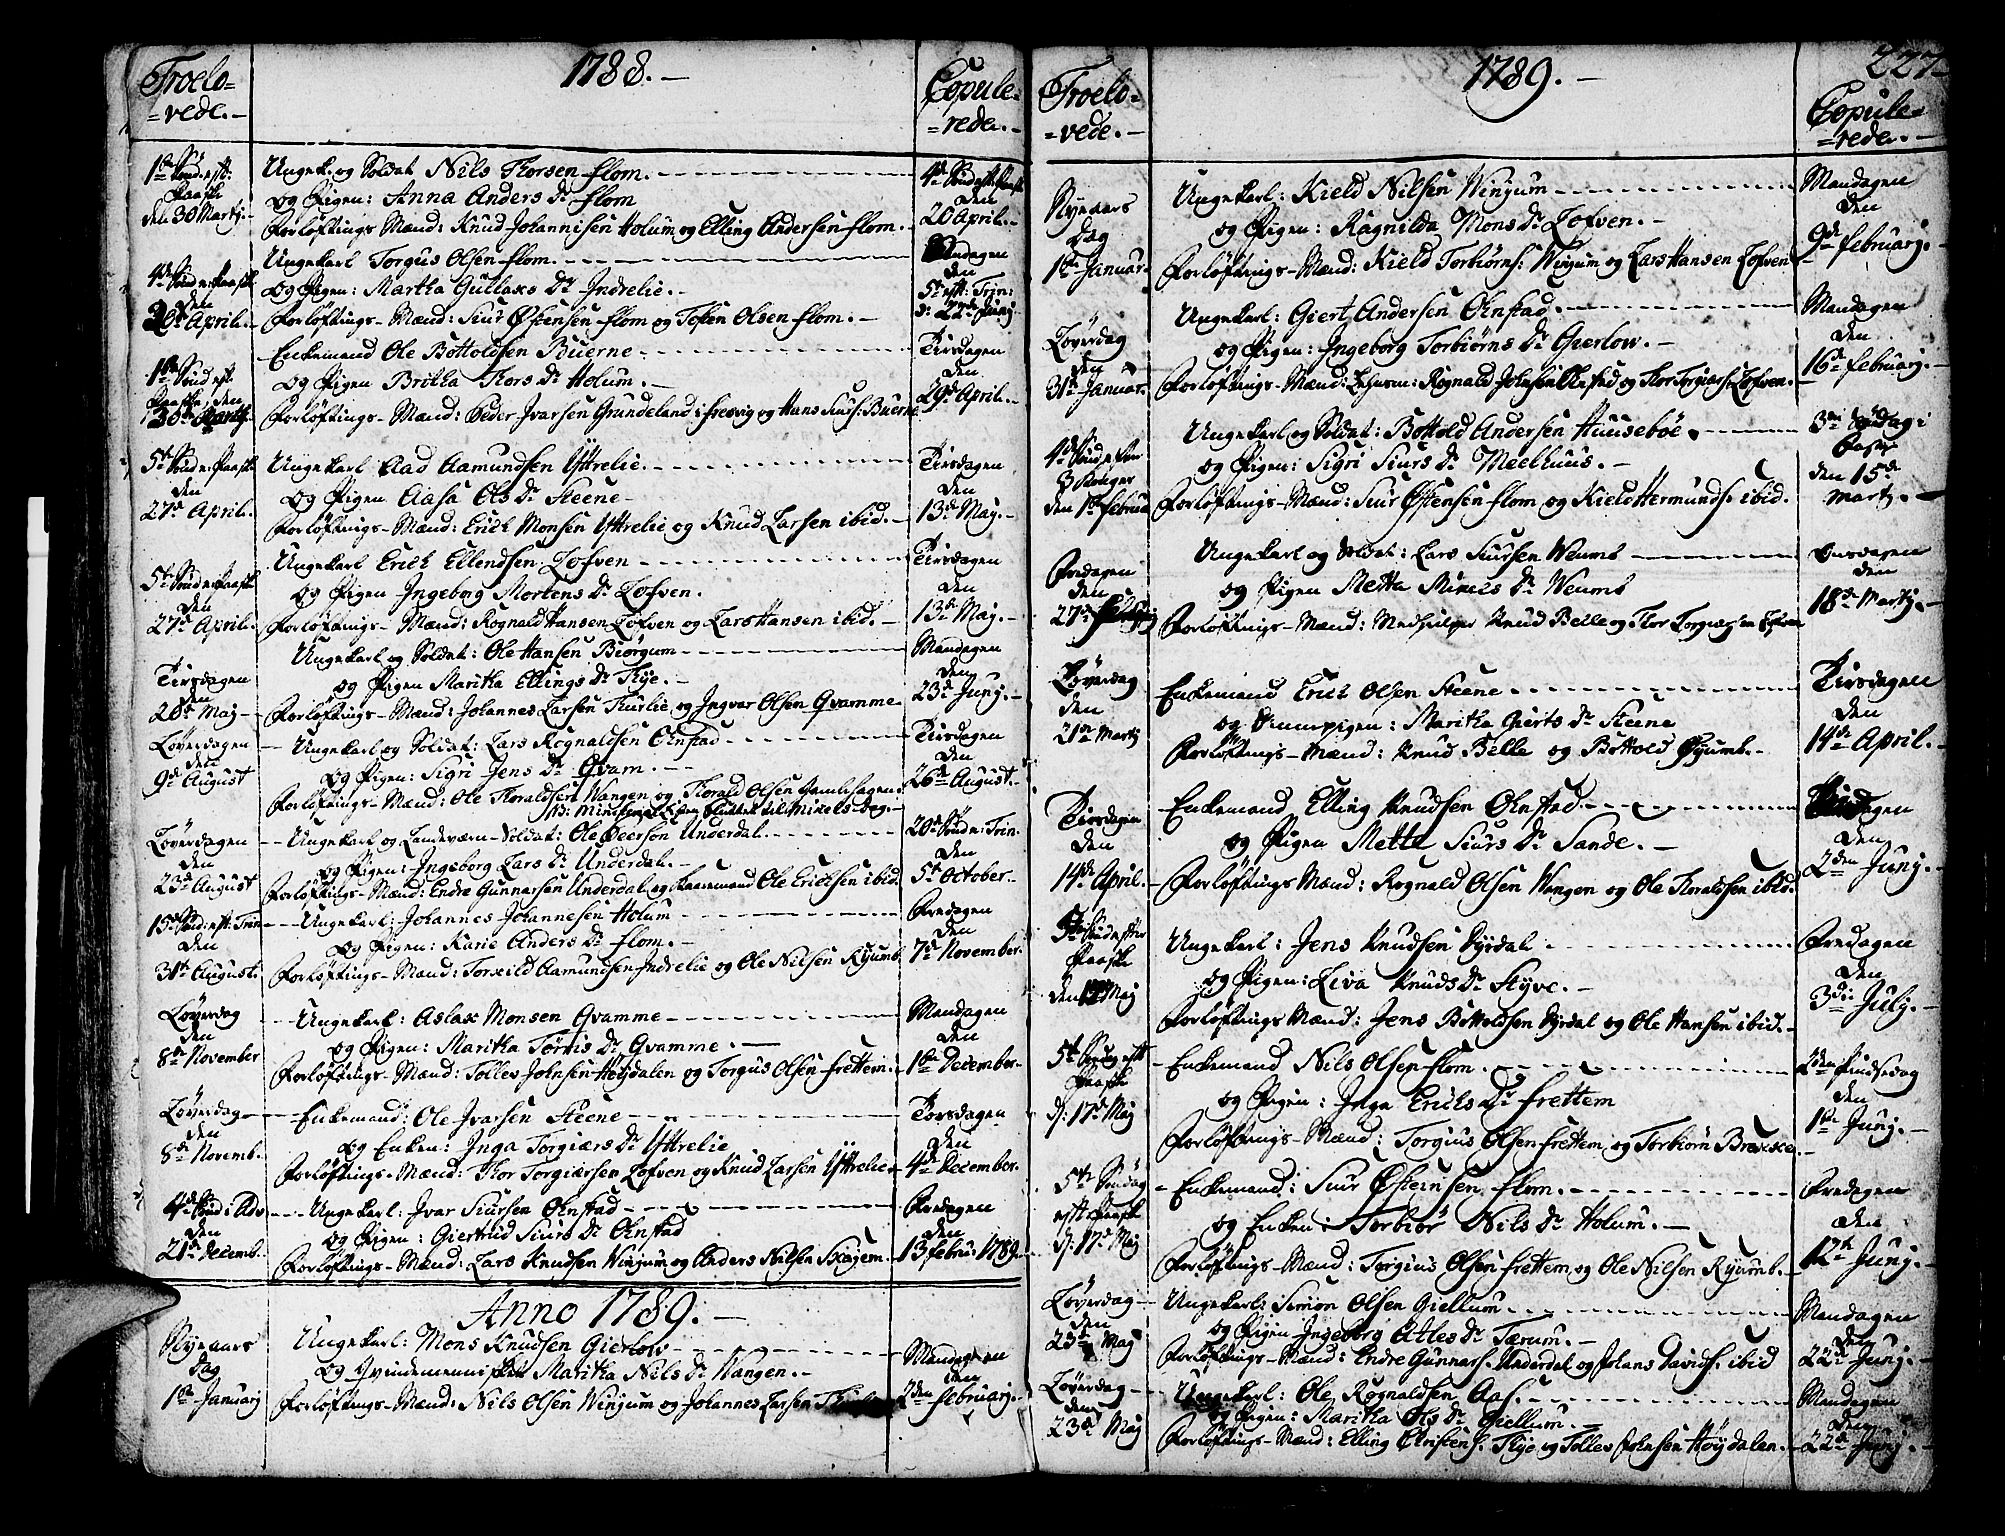 Troelo=
=vede.-
1788.-
Copule-
=rede.-
1te Sönd. eft:
Paaske
den 30 Martj.
Ungek. og Soldat Nils Thorsen Flom.
og Pigen: Anna Anders Dr Flom
Forløftnings Mænd: Knud Johannisen Holum og Elling Andersen Flom.
4de Sönd. eft: Paaske
den
20 April.
4de Sönd. e: Paaske
den
20de April.
Ungekarl Torgus Olsen Flom.
og Pigen: Martha Gullaks Dr Indrelie.
Forløftnings-Mænd: Siur Østensen Flom og Tosten Olsen Flom.
Söndagen
den
5te eft: Trin:
d: 22de Junj
1te Sönd. eft.
Paaske, den
30te Martj.
Enkemand Ole Bottoldsen Buerne
og Pigen Britha Thors Dr Holum.
Forløftnings-Mænd: Peder Ivarsen Grundeland i Fresvig og Hans Siurs: Buerne
Tirsdagen
den
29de April.
5te Sönd. e: Paaske
den
27de April.
Ungekarl Aad Aamundsen Yttrelie.
og Pigen Aasa Ols Dr Steene
Forløftnings-Mænd: Erich Monsen Yttrelie og Knud Larsen ibid.
Tirsdagen
den
13de Maj.
5te Sönd. e: Paaske
den
27de April.
Ungekarl Erich Ellendsen Lofven
og Pigen Ingeborg Mortens Dr Lofven.
Forløftnings-Mænd: Rognald Hansen Lofven og Lars Hansen ibid.
Tirsdagen
den
13de Maj.
Tirsdagen
den
20de Maj
Ungekarl og Soldat: Ole Hansen Biørgum
og Pigen Maritha Ellings Dr Flye.
Forløftnings-Mænd: Johannes Larsen Thurlie, og Ingvar Olsen Gvamme
Mandagen
den
23de Junj.
Løverdagen
den
9de August
Ungekarl og Soldat: Lars Rognaldsen Ohnstad
og Pigen: Sigri Jens Dr Gvam.
Forløftnings-Mænd: Ole Thoraldsen Wangen og Thorald Olsen
Tirsdagen
den
26de August.
Løverdagen
den
23de August
Ungekarl og Landeværn-Soldat: Ole Peersøn Underdal.
og Pigen: Ingeborg Lars Dr Underdal.
Forløftnings-Mænd: Endre Gunnarsen Underdal og Enkemand Ole Ericksen ibid.
20de Sönd. e: Trin.
den
5te October.
15de Sönd: eft: Trin
den
31te August.
Ungekarl: Johannes Johannesen Holum
og Pigen: Karie Anders Dr Flom.
Forløftnings-Mænd: Torkild Aamundsen Indrelie og Ole Nilsen Ryumb
Fredagen
den
7de November.
Løverdag
den
8de November
Ungekarl: Aslak Monsen Gvamme
og Pigen: Maritha Tørris Dr Gvamme.
Forløftnings-Mænd: Tollev Johnsen Høydalen og Torgus Olsen Frettem.
Mandagen
den
1te December.
Løverdag
den
8de Novemb.
Enkemand: Ole Ivarsen Steene
og Enken: Inga Torgiærs Dr Yttrelie
Forløftnings-Mænd: Thor Torgiærsen Lofven og Knud Larsen Yttrelie.
Torsdagen
den
4de December.
4de Sönd. i Adv
den
21de Decemb.
Ungekarl: Ivar Siursen Ohnstad
og Pigen: Giertrud Siurs Dr Ohnstad
Forløftnings-Mænd: Lars Knudsen Winjum og Anders Nilsen Skajem.
Fredagen
den
13 Febru: 1789.
Anno 1789.-
Nyeaars
dag
1te Januarj
Ungekarl: Mons Knudsen Gierløw
og Qvindemennisket Maritha Nils Dr Wangen.
Forløftnings-Mænd: Nils Olsen Winjum og Johannes Larsen
Mandagen
den
2den Februarj.
Troelo-
=vede.-
1789.-
227
Copule=
=rede.-
Nyeaars
Dag
1te Januar.
Ungekarl: Kield Nilsen Winjum
og Pigen: Ragnilda Mons Dr Lofven.
Forløftnings-Mænd: Kield Torbiørns: Winjum og Lars Hansen Lofven
Mandagen
den
9de Februarj.
Løverdag
den
31te Januar.
Ungekarl: Giert Andersen Ohnstad.
og Pigen: Ingeborg Torbiørns Dr Gierløw.
Forløftnings-Mænd: Rognald Johnsen Ohnstad og Thor Torgiærs: Lofven.
Mandagen
den
16de Februarj.
4de Sönd. efter
3 Konger
den 1te Februa
Ungekarl og Soldat: Bottold Andersen Huusebøe.
og Pigen: Sigri Siurs Dr Meelhuus.
Forløftnings-Mænd: Siur Østensen Flom og Kield Hermunds: ibid.
3die Söndag i
Faste
den 15de
Martj.
Fredagen
den
27de
Ungekarl og Soldat: Lars Siursen Weumb
og Pigen Metta Mikels Dr Weumb
Forløftnings-Mænd: Medhielper Knud Belle og Thor Torgiærsen Lofven
Onsdagen
den
18de Martj.
Løverdag
den
21de Martj
Enkemand Erich Olsen Steene
og Pigen: Maritha Gierts Dr Steene
Forløftnings-Mænd: Knud Belle og Bottold Ryumb.
Tirsdagen
den
14de April.
Tirsdagen
den
14de April.
Enkemand Elling Knudsen Ohnstad.
og Pigen Metta Siurs Dr Sande.
Forløftnings Mænd: Rognald Olsen Wangen og Ole Thoraldsen ibid.
den
2den Junj.
Sönd efter
Paaske
den Maj
Ungekarl: Jens Knudsen Dyrdal
og Pigen: Liva Knuds Dr Styve.
Forløftnings Mænd: Jens Bottoldsen Dyrdal og Ole Hansen ibid.
Fredagen
den
3die Julj.
5te Söndag eft
Paaske
d: 17de Maj
Enkemand Nils Olsen Flom.
og Pigen: Inga Erichs Dr Frettem
Forløftnings-Mænd: Torgius Olsen Frettem og Torbiørn Brekke.
2den Pindsedag
den
1te Junj.
5te Söndag
eft: Paaske
d: 17de Maj
Enkemand: Siur Østensen Flom.
og Enken: Torbiør Nils Dr Holum.
Forløftnings-Mænd: Torgius Olsen Frettem og Ole Nilsen Ryumb.
Fredagen
den
12te Junj.
Løverdag
den
23de Maj
Ungekarl: Simon Olsen Giellum
og Pigen Ingeborg Atles Dr Tærum.
Forløftnings-Mænd: Endre Gunnars: Underdal og Johans Davids: ibid
Mandagen
den
22de Junj.
Løverdag
den
23de Maj
Ungekarl: Ole Rognaldsen Aas.
og Pigen: Maritha Ols Dr Giellum.
Forløftnings-Mænd: Elling Christens: Flye og Tollev Johnsen Høydalen.
Mandagen
den
22de Junj.